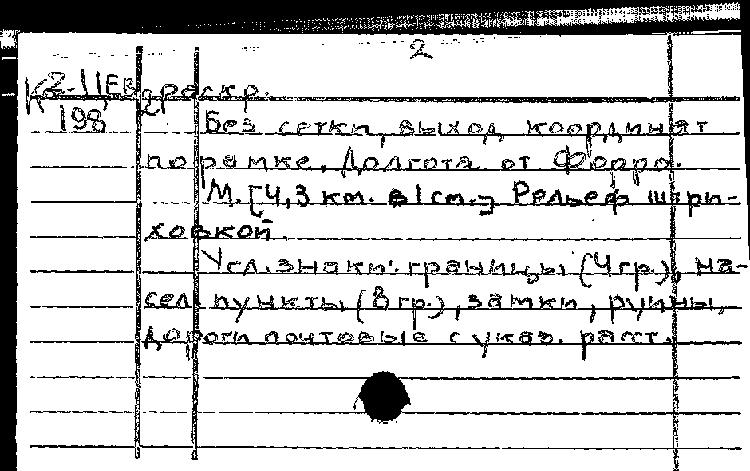 2
К 2-11Ев раскр.
198 Без сетки, выход координат
по рамке. Долгота от Ферро.
М. [4,3 км. в 1 см.] Рельеф штри-
ховкой.
Усл. знаки: границы (4 гр.), на-
сел. пункты (8 гр.), замки, руины,
дороги почтовые с указ. расст.